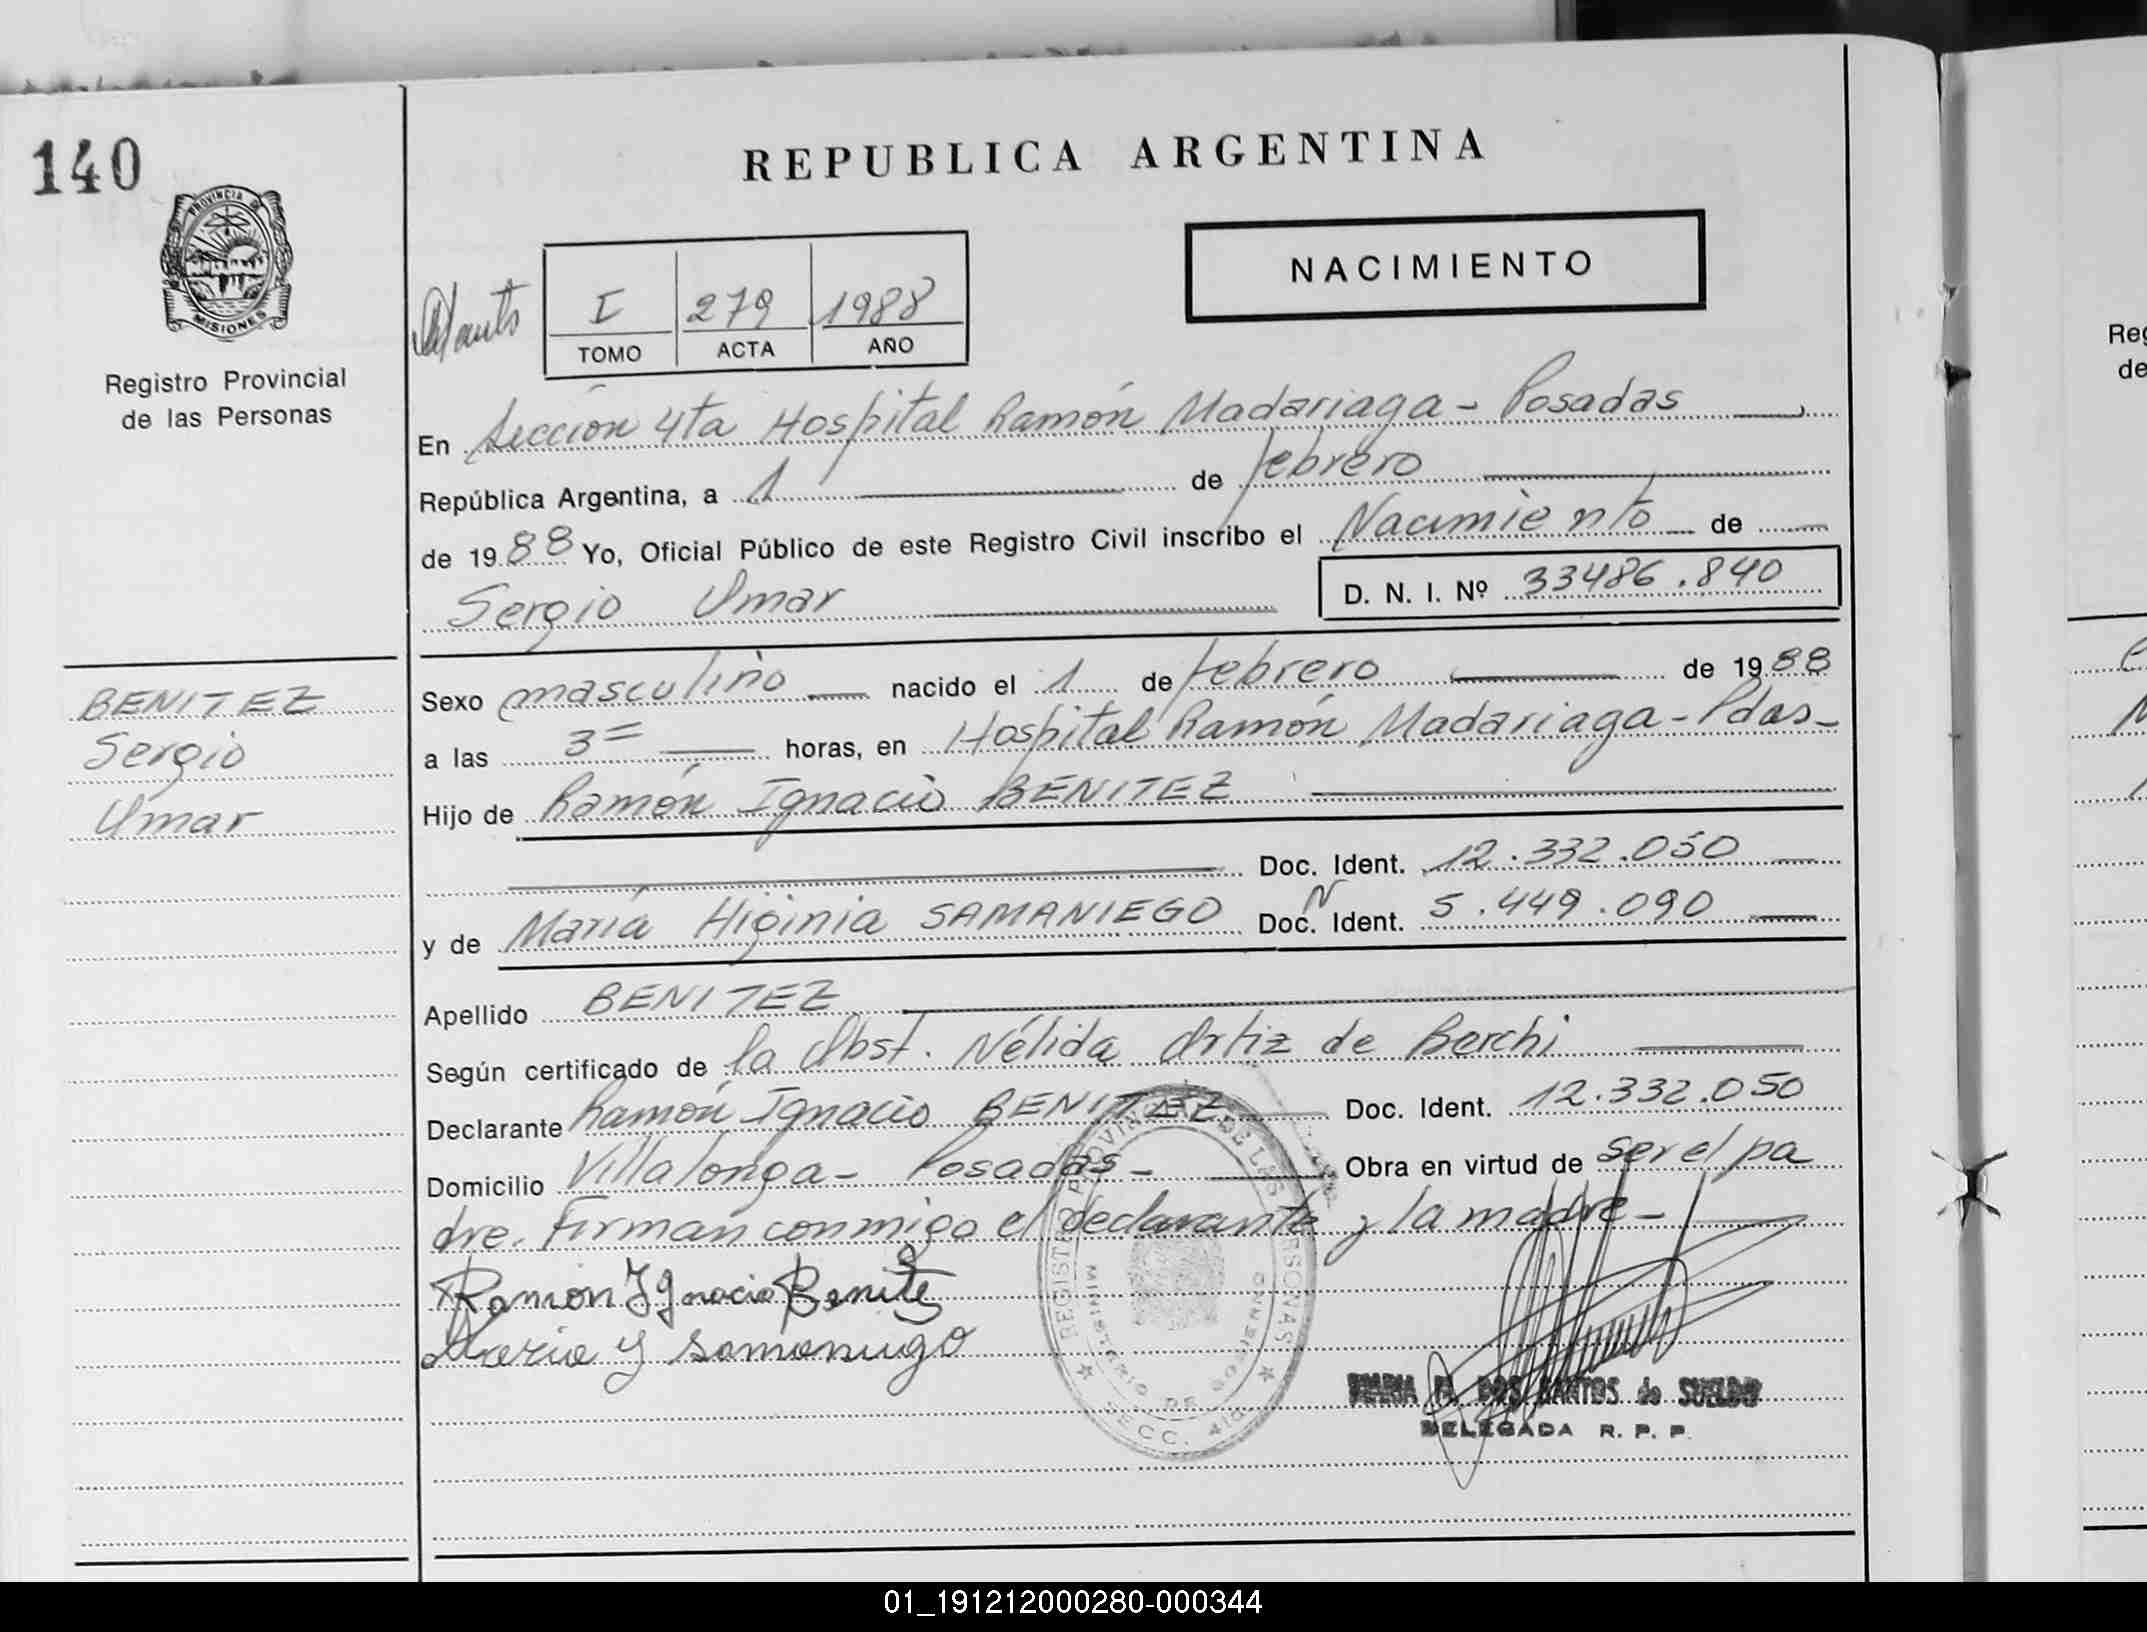 140
PROVINCIA DE
MISIONES
Registro Provincial
de las Personas
BENITEZ
Sergio
Omar
REPUBLICA ARGENTINA
NACIMIENTO
I 279 1988
TOMO ACTA AÑO
En Sección 4ta Hospital Ramón Madariaga - Posadas
República Argentina, a 1 de febrero
de 1988 Yo, Oficial Público de este Registro Civil inscribo el Nacimiento de
Sergio Omar D. N. I. Nº 33486.840
Sexo masculino nacido el 1 de febrero de 1988
a las 3= horas, en Hospital Ramón Madariaga - Pdas-
Hijo de Ramón Ignacio BENITEZ
Doc. Ident. 12.332.050
N
y de María Higinia SAMANIEGO Doc. Ident. 5.449.090
Apellido BENITEZ
Según certificado de la Obst. Nélida Ortiz de Berchi
Declarante Ramón Ignacio BENITEZ Doc. Ident. 12.332.050
Domicilio Villalonga - Posadas - Obra en virtud de ser el pa
dre. Firman conmigo el declarante y la madre -
Ramón Ignacio Benitez
Maria y Samaniego
REGISTRO PROVINCIAL DE LAS PERSONAS
MINISTERIO DE GOBIERNO
SECC. 4ta
MARIA DOS SANTOS de SUELDO
DELEGADA R. P. P.
Reg
de
01_191212000280-000344